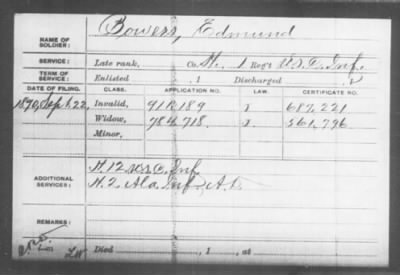 NAME OF SOLDIER: Bowers, Edmund
SERVICE: Late rank, Co. H, 1 Reg't U.S.C. Inf.
TERM OF SERVICE: Enlisted , 1 Discharged , 1
DATE OF FILING. CLASS. APPLICATION NO. LAW. CERTIFICATE NO.
1890, Sept. 22, Invalid, 911.189 J 687.221
Widow, 784.718 J 561,796
Minor,
ADDITIONAL SERVICES: H. 12 U.S.C. Inf.
H. 2 Ala Inf A.D.
REMARKS:
Died , 1 , at